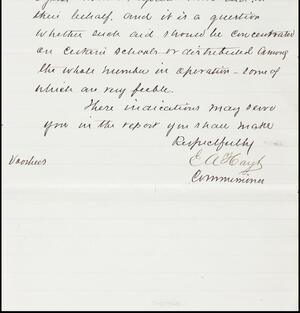 their behalf, and it is a question
whether such aid should be concentrated
on certain schools or distributed among
the whole number in operation - some of
which are very feeble.
These indications may serve
you in the report you shall make
Respectfully
E A Hayt
Commissioner
Voorhees